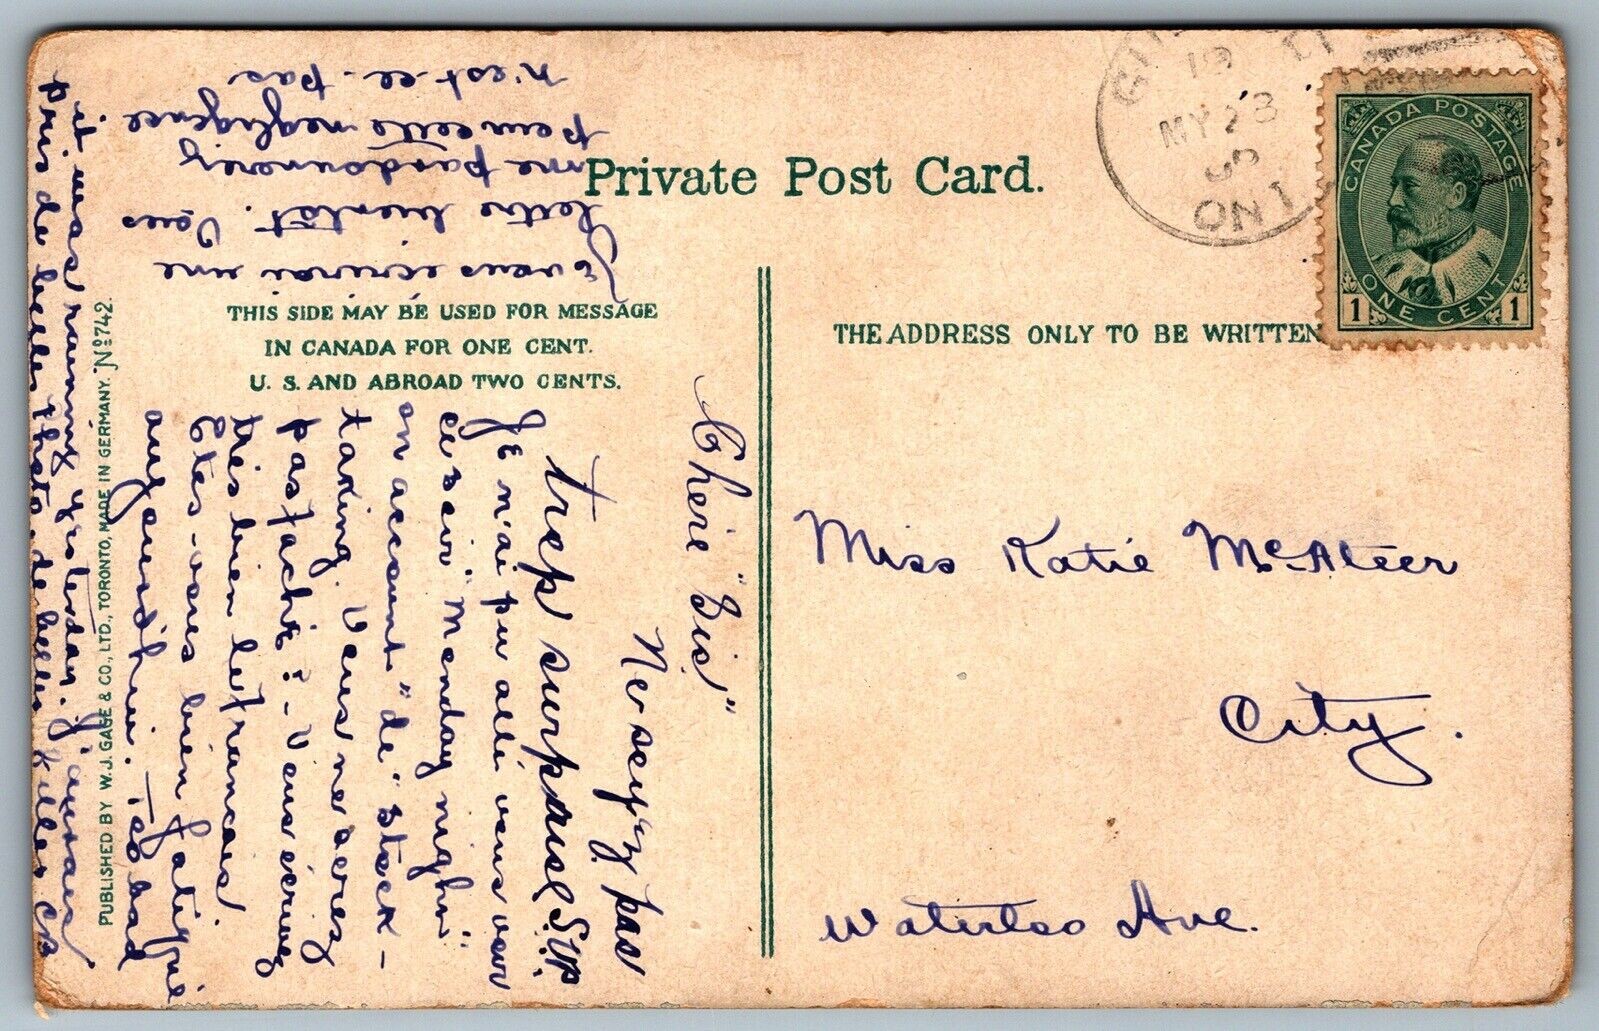 Private Post Card.
THIS SIDE MAY BE USED FOR MESSAGE
IN CANADA FOR ONE CENT.
U. S. AND ABROAD TWO CENTS.
THE ADDRESS ONLY TO BE WRITTEN
PUBLISHED BY W. J. GAGE & CO., LTD., TORONTO, MADE IN GERMANY. No 742
MY 23
ONT
CANADA POSTAGE
1 ONE CENT 1
Miss Katie McAteer
City.
Waterloo Ave.
Chère "Sis"
Ne soyez pas
trop surprise
Je n'ai pu allé vous voir
ce soir "Monday night"
on account "de" stock-
taking. Vous ne serez
pas fachée? - Vous écrivez
très bien le français!
Etes-vous bien fatiguée
aujourd'hui. Too bad
it was rainny yesterday. J'
pris de belles
Je vous écrirai une
lettre bientôt. Vous
me pardonnerez
pour cette negligence
n'est-ce-pas